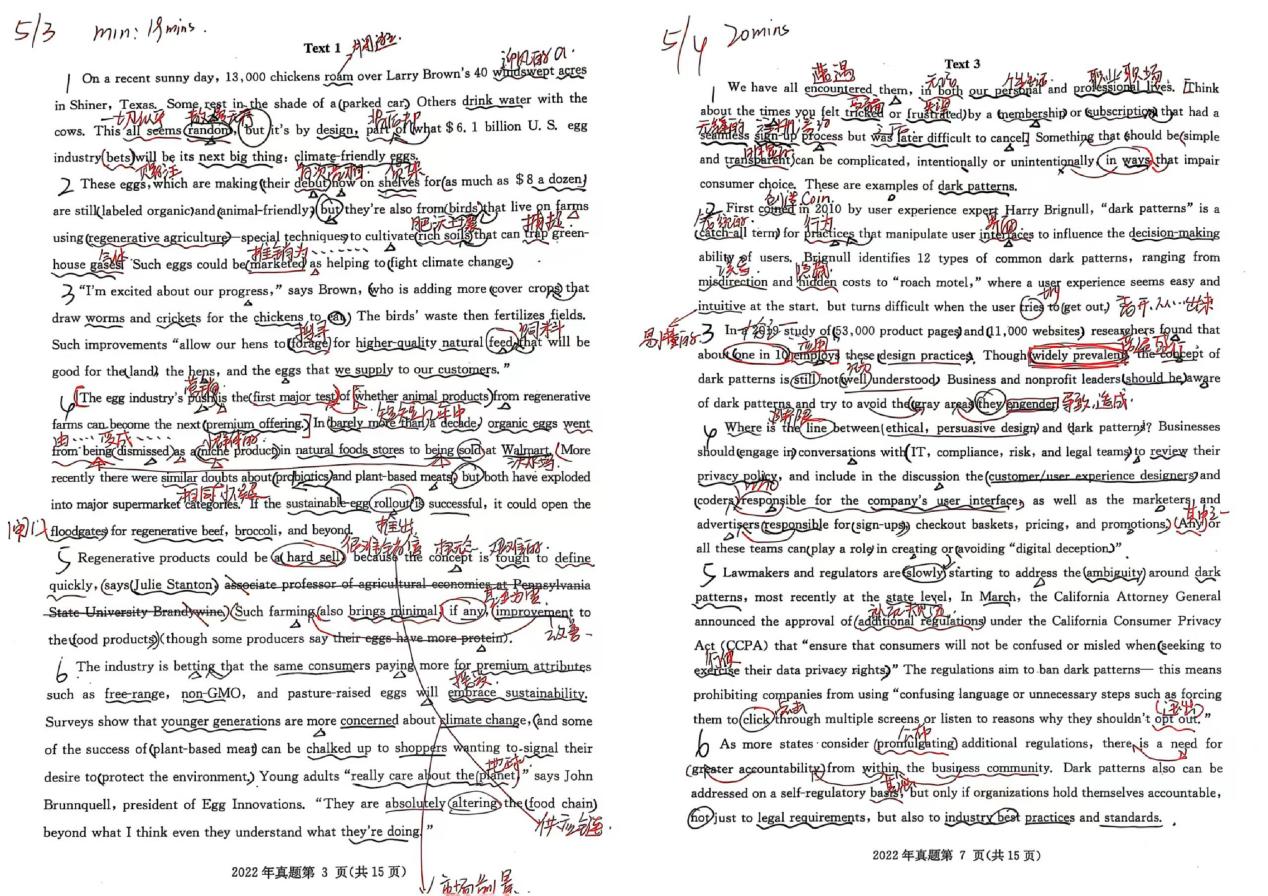 5/3 min: 19mins.
Text 1
1 On a recent sunny day, 13,000 chickens roam over Larry Brown's 40 windswept acres
in Shiner, Texas. Some rest in the shade of a (parked car) Others drink water with the
cows. This all seems random, but it's by design, part of what $6.1 billion U. S. egg
industry (bets) will be its next big thing: climate-friendly eggs.
赌注
2 These eggs, which are making their debut now on shelves for (as much as $8 a dozen)
are still (labeled organic) and (animal-friendly) but they're also from (birds) that live on farms
肥沃土壤 捕捉
using (regenerative agriculture) special techniques to cultivate rich soils that can trap green-
气体 推销为
house gases. Such eggs could be (marketed as helping to (fight climate change.)
3 "I'm excited about our progress," says Brown, (who is adding more (cover crops) that
draw worms and crickets for the chickens to eat.) The birds' waste then fertilizes fields.
饲料
Such improvements "allow our hens to (forage) for higher-quality natural feed, that will be
good for the (land), the hens, and the eggs that we supply to our customers."
[The egg industry's push is the (first major test) of [whether animal products) from regenerative
farms can become the next (premium offering.] In (barely more than a decade) organic eggs went
from being dismissed as a (niche product) in natural foods stores to being (sold at Walmart. (More
沃尔玛
recently there were similar doubts about (probiotics) and plant-based meats, but both have exploded
into major supermarket categories. If the sustainable-egg rollout is successful, it could open the
闸门
floodgates for regenerative beef, broccoli, and beyond.
推出
5 Regenerative products could be a (hard sell) because the concept is tough to define
quickly, (says (Julie Stanton) associate professor of agricultural economics at Pennsylvania
State University Brandywine.) (Such farming (also brings minimal, if any, (improvement to
the (food products)) (though some producers say their eggs have more protein).
改善
6 The industry is betting that the same consumers paying more for premium attributes
such as free-range, non-GMO, and pasture-raised eggs will embrace sustainability.
Surveys show that younger generations are more concerned about climate change, (and some
of the success of (plant-based meat) can be chalked up to shoppers wanting to signal their
地球
desire to (protect the environment.) Young adults "really care about the (planet," says John
Brunnquell, president of Egg Innovations. "They are absolutely altering the (food chain)
beyond what I think even they understand what they're doing."
供应链
2022 年真题第 3 页(共 15 页)
市场前景
5/4 20mins
Text 3
遭遇 职业职场
1 We have all encountered them, in both our personal and professional lives. [Think
about the times you felt tricked or (frustrated) by a (membership) or (subscription) that had a
seamless sign-up process but was later difficult to cancel.] Something that should be (simple
and transparent) can be complicated, intentionally or unintentionally, (in ways) that impair
consumer choice. These are examples of dark patterns.
创造 Coin
2 First coined in 2010 by user experience expert Harry Brignull, "dark patterns" is a
行为 界面
(catch-all term) for practices that manipulate user interfaces to influence the decision-making
ability of users. Brignull identifies 12 types of common dark patterns, ranging from
误导 隐藏
misdirection and hidden costs to "roach motel," where a user experience seems easy and
try
intuitive at the start, but turns difficult when the user tries to (get out.)
易懂的
3 In a 2019 study of (53,000 product pages) and (11,000 websites) researchers found that
about (one in 10) employs these design practices. Though widely prevalent, the concept of
dark patterns is (still) not (well) understood. Business and nonprofit leaders (should be) aware
of dark patterns and try to avoid the (gray areas) they engender. 导致, 造成.
4 Where is the line between (ethical, persuasive design) and dark patterns? Businesses
should (engage in) conversations with (IT, compliance, risk, and legal teams) to review their
privacy policy, and include in the discussion the (customer/user experience designers) and
(coders) responsible for the company's user interface, as well as the marketers and
其中之一
advertisers (responsible for (sign-ups), checkout baskets, pricing, and promotions.) (Any) or
all these teams can (play a role) in creating or (avoiding "digital deception."
5 Lawmakers and regulators are (slowly) starting to address the (ambiguity) around dark
patterns, most recently at the state level. In March, the California Attorney General
announced the approval of (additional regulations) under the California Consumer Privacy
Act (CCPA) that "ensure that consumers will not be confused or misled when (seeking to
行使
exercise their data privacy rights)" The regulations aim to ban dark patterns— this means
prohibiting companies from using "confusing language or unnecessary steps such as forcing
点击 (退出)
them to (click) through multiple screens or listen to reasons why they shouldn't opt out."
6 As more states consider (promulgating) additional regulations, there is a need for
(greater accountability) from within the business community. Dark patterns also can be
addressed on a self-regulatory basis, but only if organizations hold themselves accountable,
(not) just to legal requirements, but also to industry best practices and standards.
2022 年真题第 7 页(共 15 页)